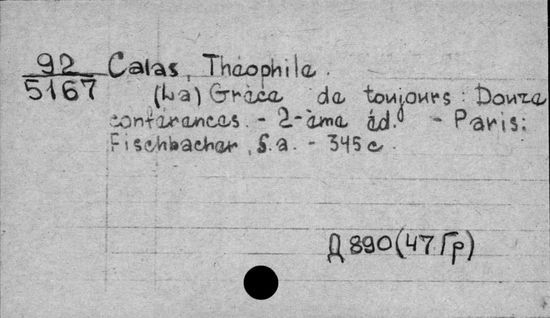 92
5167
Calas, Théophile.
(La) Grèce de toujours: Douze
conférences. - 2-ème éd. - Paris:
Fischbacher, s.a. - 345 c.
Д 890(47Гр)